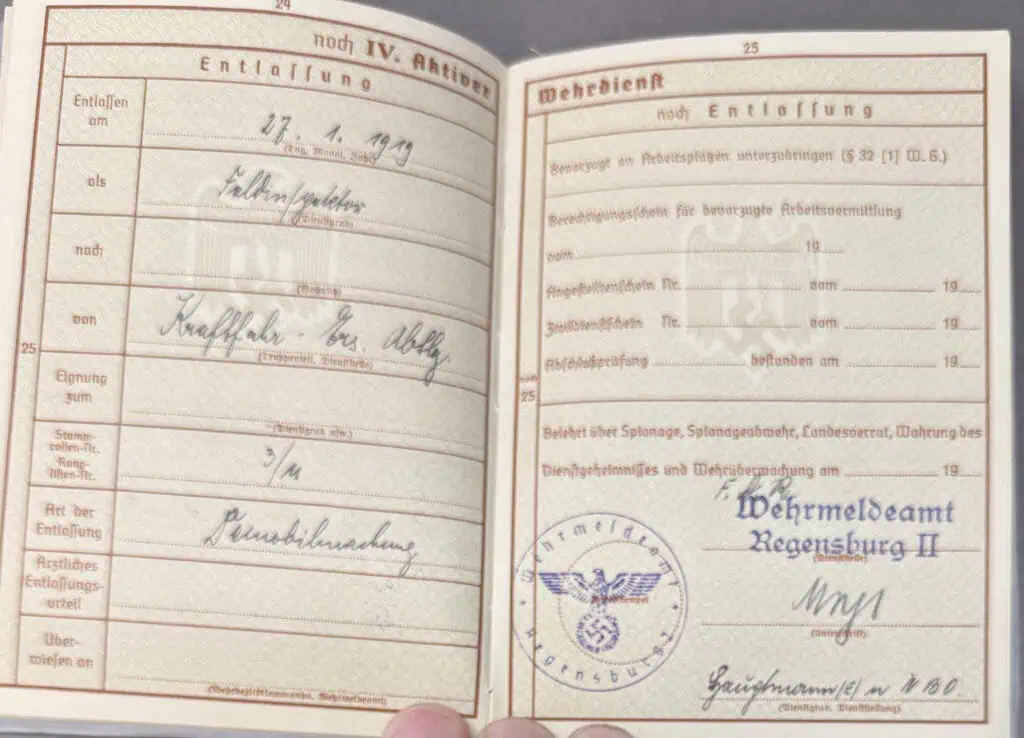 24
noch IV. Aktiver
Entlassung
Entlassen
am
27. 1. 1919
(Tag, Monat, Jahr)
als
Feldinspektor
(Dienstgrad)
nach
(Wohnsitz)
von
Kraftfahr-Ers. Abtlg.
(Truppenteil, Dienststelle)
25
Eignung
zum
(Dienstgrad usw.)
Stamm-
rollen-Nr.
Rang-
listen-Nr.
Art der
Entlassung
Demobilmachung
Ärztliches
Entlassungs-
urteil
Über-
wiesen an
(Wehrbezirkskommando, Wehrmeldeamt)
25
Wehrdienst
noch Entlassung
Bevorzugt an Arbeitsplätzen unterzubringen (§ 32 [1] W. G.)
Berechtigungsschein für bevorzugte Arbeitsvermittlung
vom 19
Angestelltenschein Nr. vom 19
Zivildienstschein Nr. vom 19
Abschlußprüfung bestanden am 19
noch
25
Belehrt über Spionage, Spionageabwehr, Landesverrat, Wahrung des
Dienstgeheimnisses und Wehrüberwachung am 19
Wehrmeldeamt
Regensburg II
(Dienststelle)
Wehrmeldeamt
Regensburg
Dienststempel
(Unterschrift)
Hauptmann (E) u
(Dienstgrad, Dienststellung)